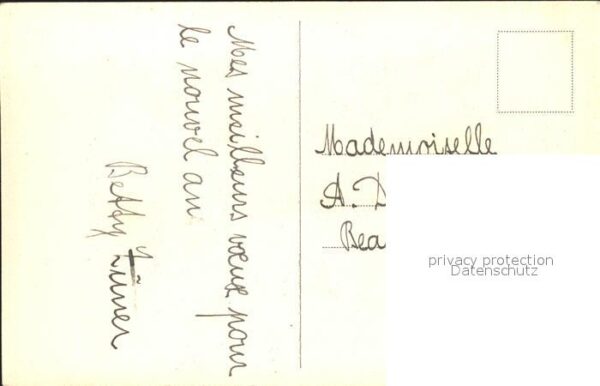 Mes meilleurs vœux pour
le nouvel an
Betty
Mademoiselle
A. D
Bea
privacy protection
Datenschutz